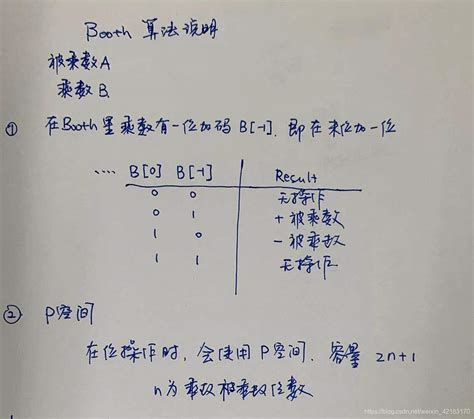 Booth 算法说明
被乘数A
乘数 B
① 在Booth里乘数有一位加码 B[-1], 即在末位加一位
.... B[0] B[-1] Result
0 0 无操作
0 1 + 被乘数
1 0 - 被乘数
1 1 无操作
② P空间
在位操作时, 会使用 P空间, 容量 2n+1
n为乘数和乘数位数
https://blog.csdn.net/weixin_42183170